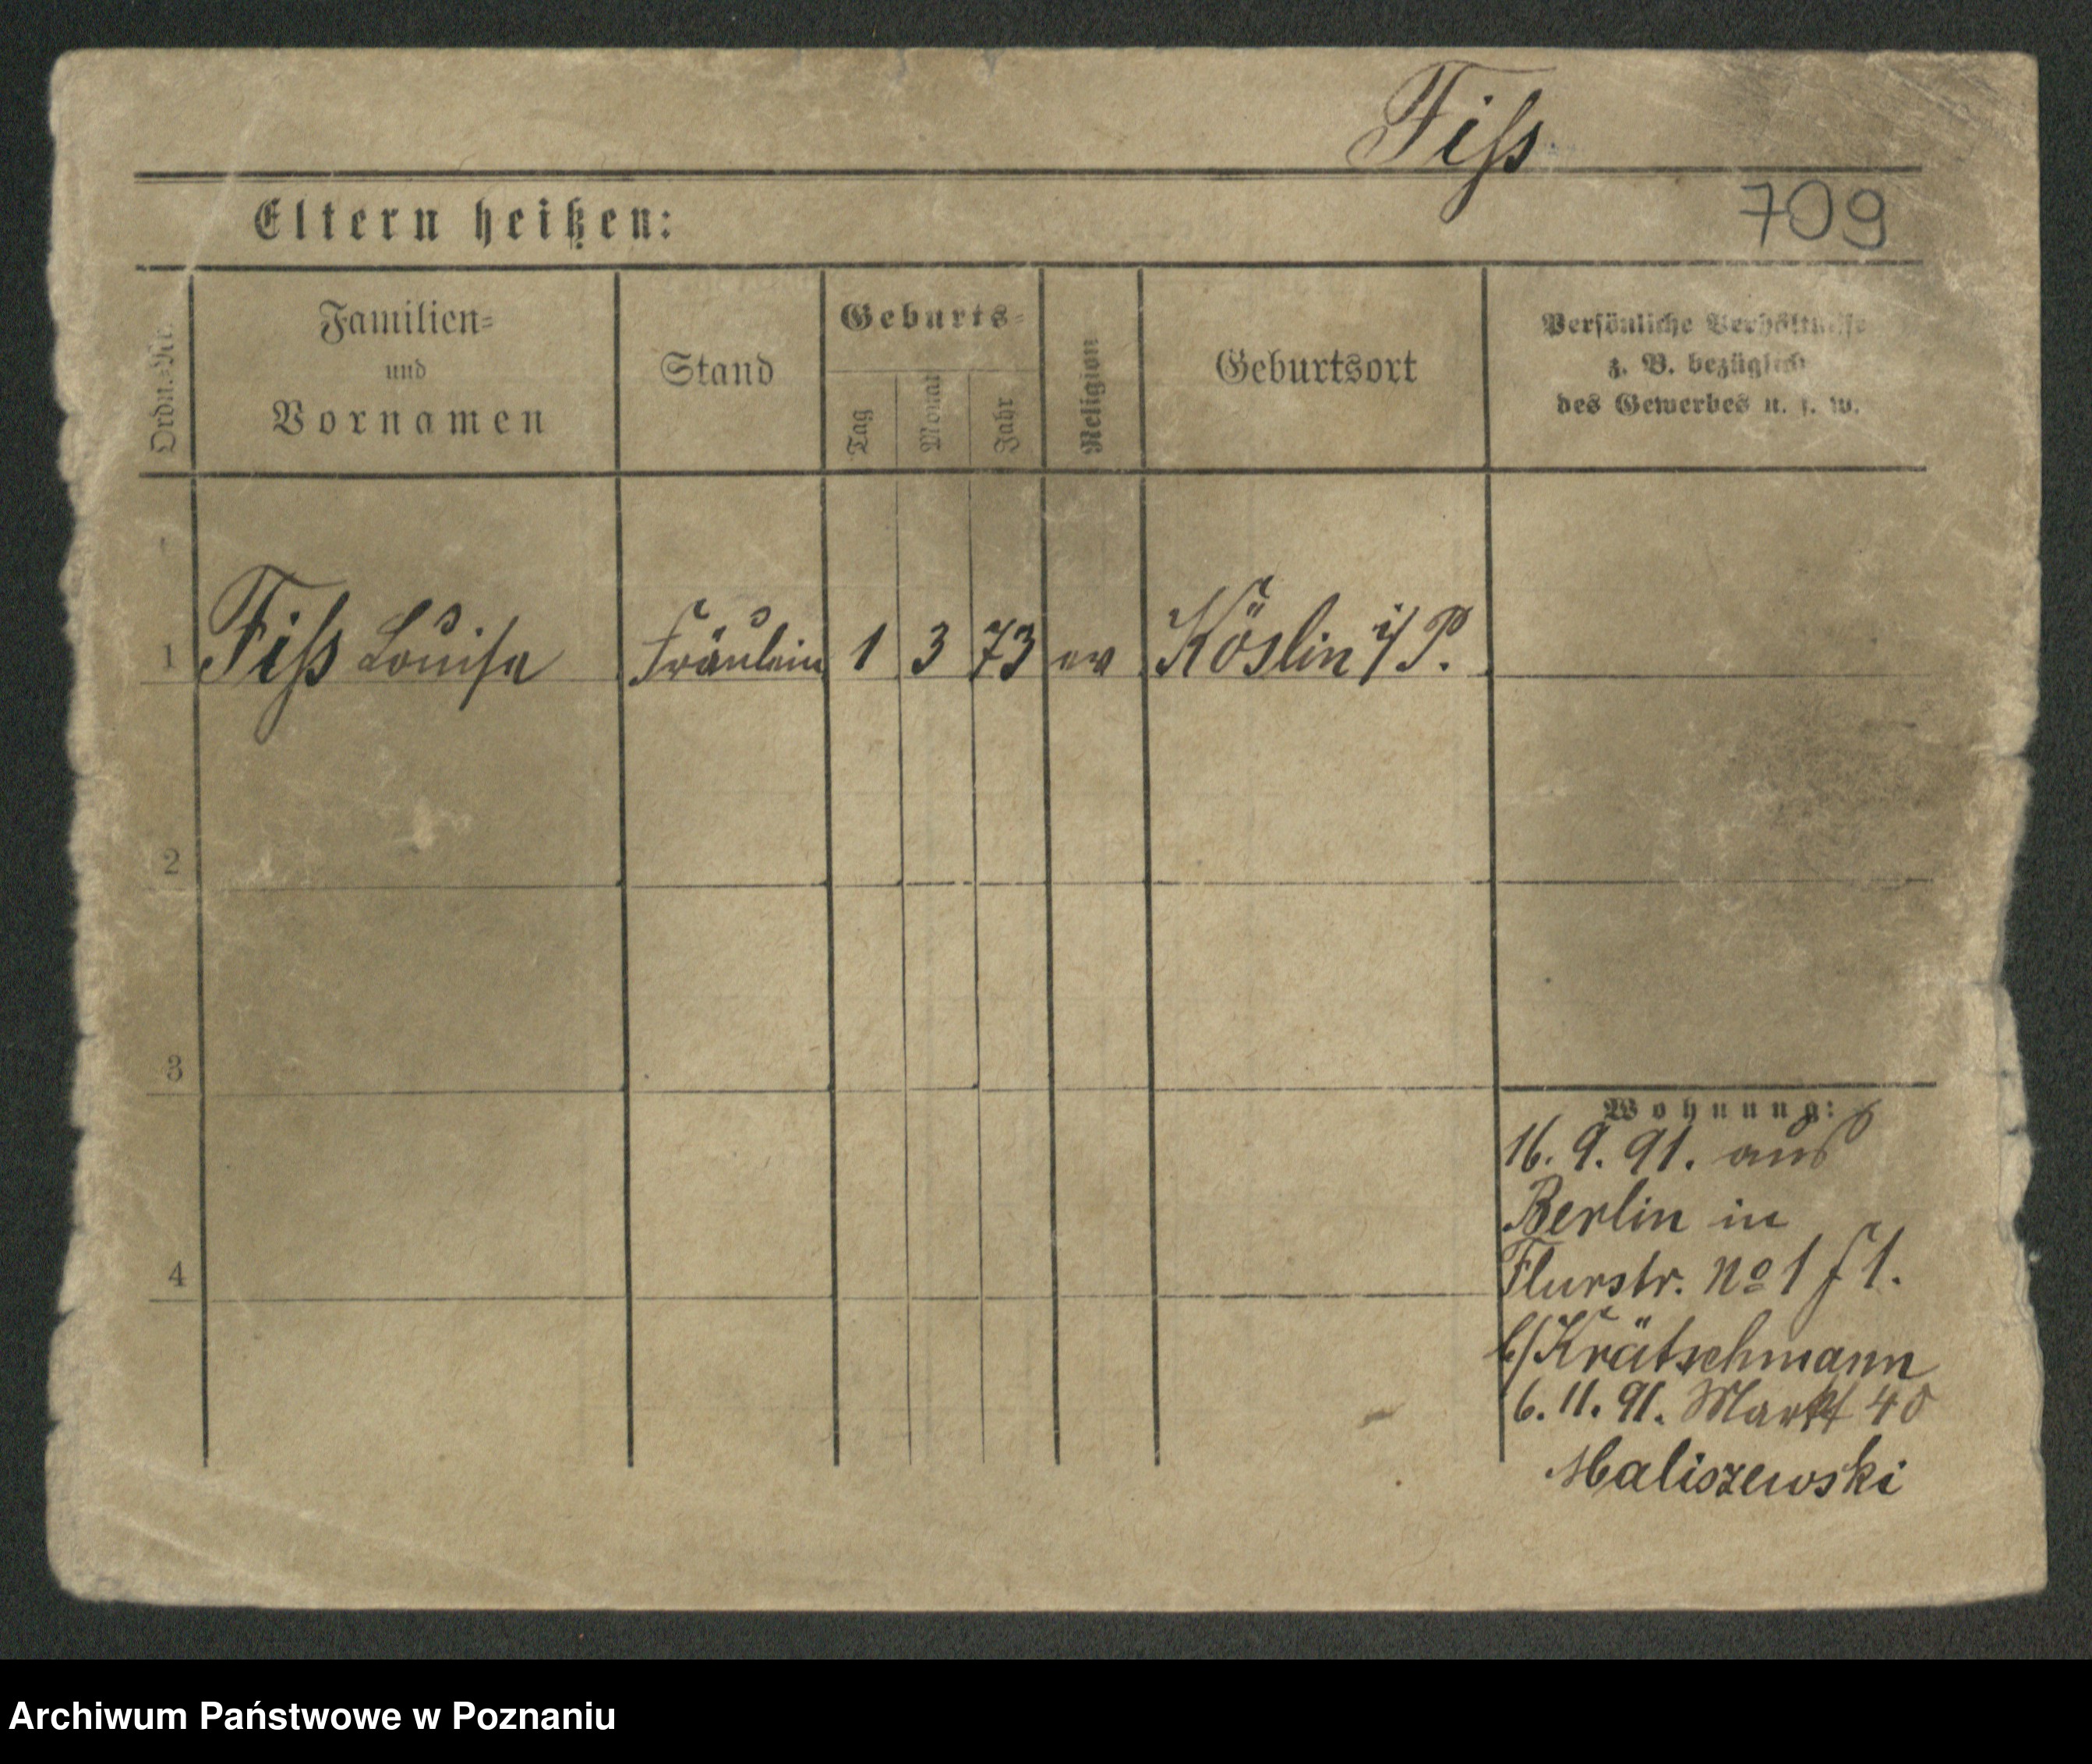 Fiſs
Eltern heißen:
709
Ordn.-Nr.
Familien-
und
Vornamen
Stand
Geburts-
Tag
Monat
Jahr
Religion
Geburtsort
Persönliche Verhältnisse
z. B. bezüglich
des Gewerbes u. s. w.
1 Fiſs Louise Fräulein 1 3 73 ev Köslin i/P.
2
3
4
Wohnung:
16. 9. 91. aus
Berlin in
Flurstr. No 1 1.
b/Krätschmann
6. 11. 91. Markt 40
Maliszewski
Archiwum Państwowe w Poznaniu